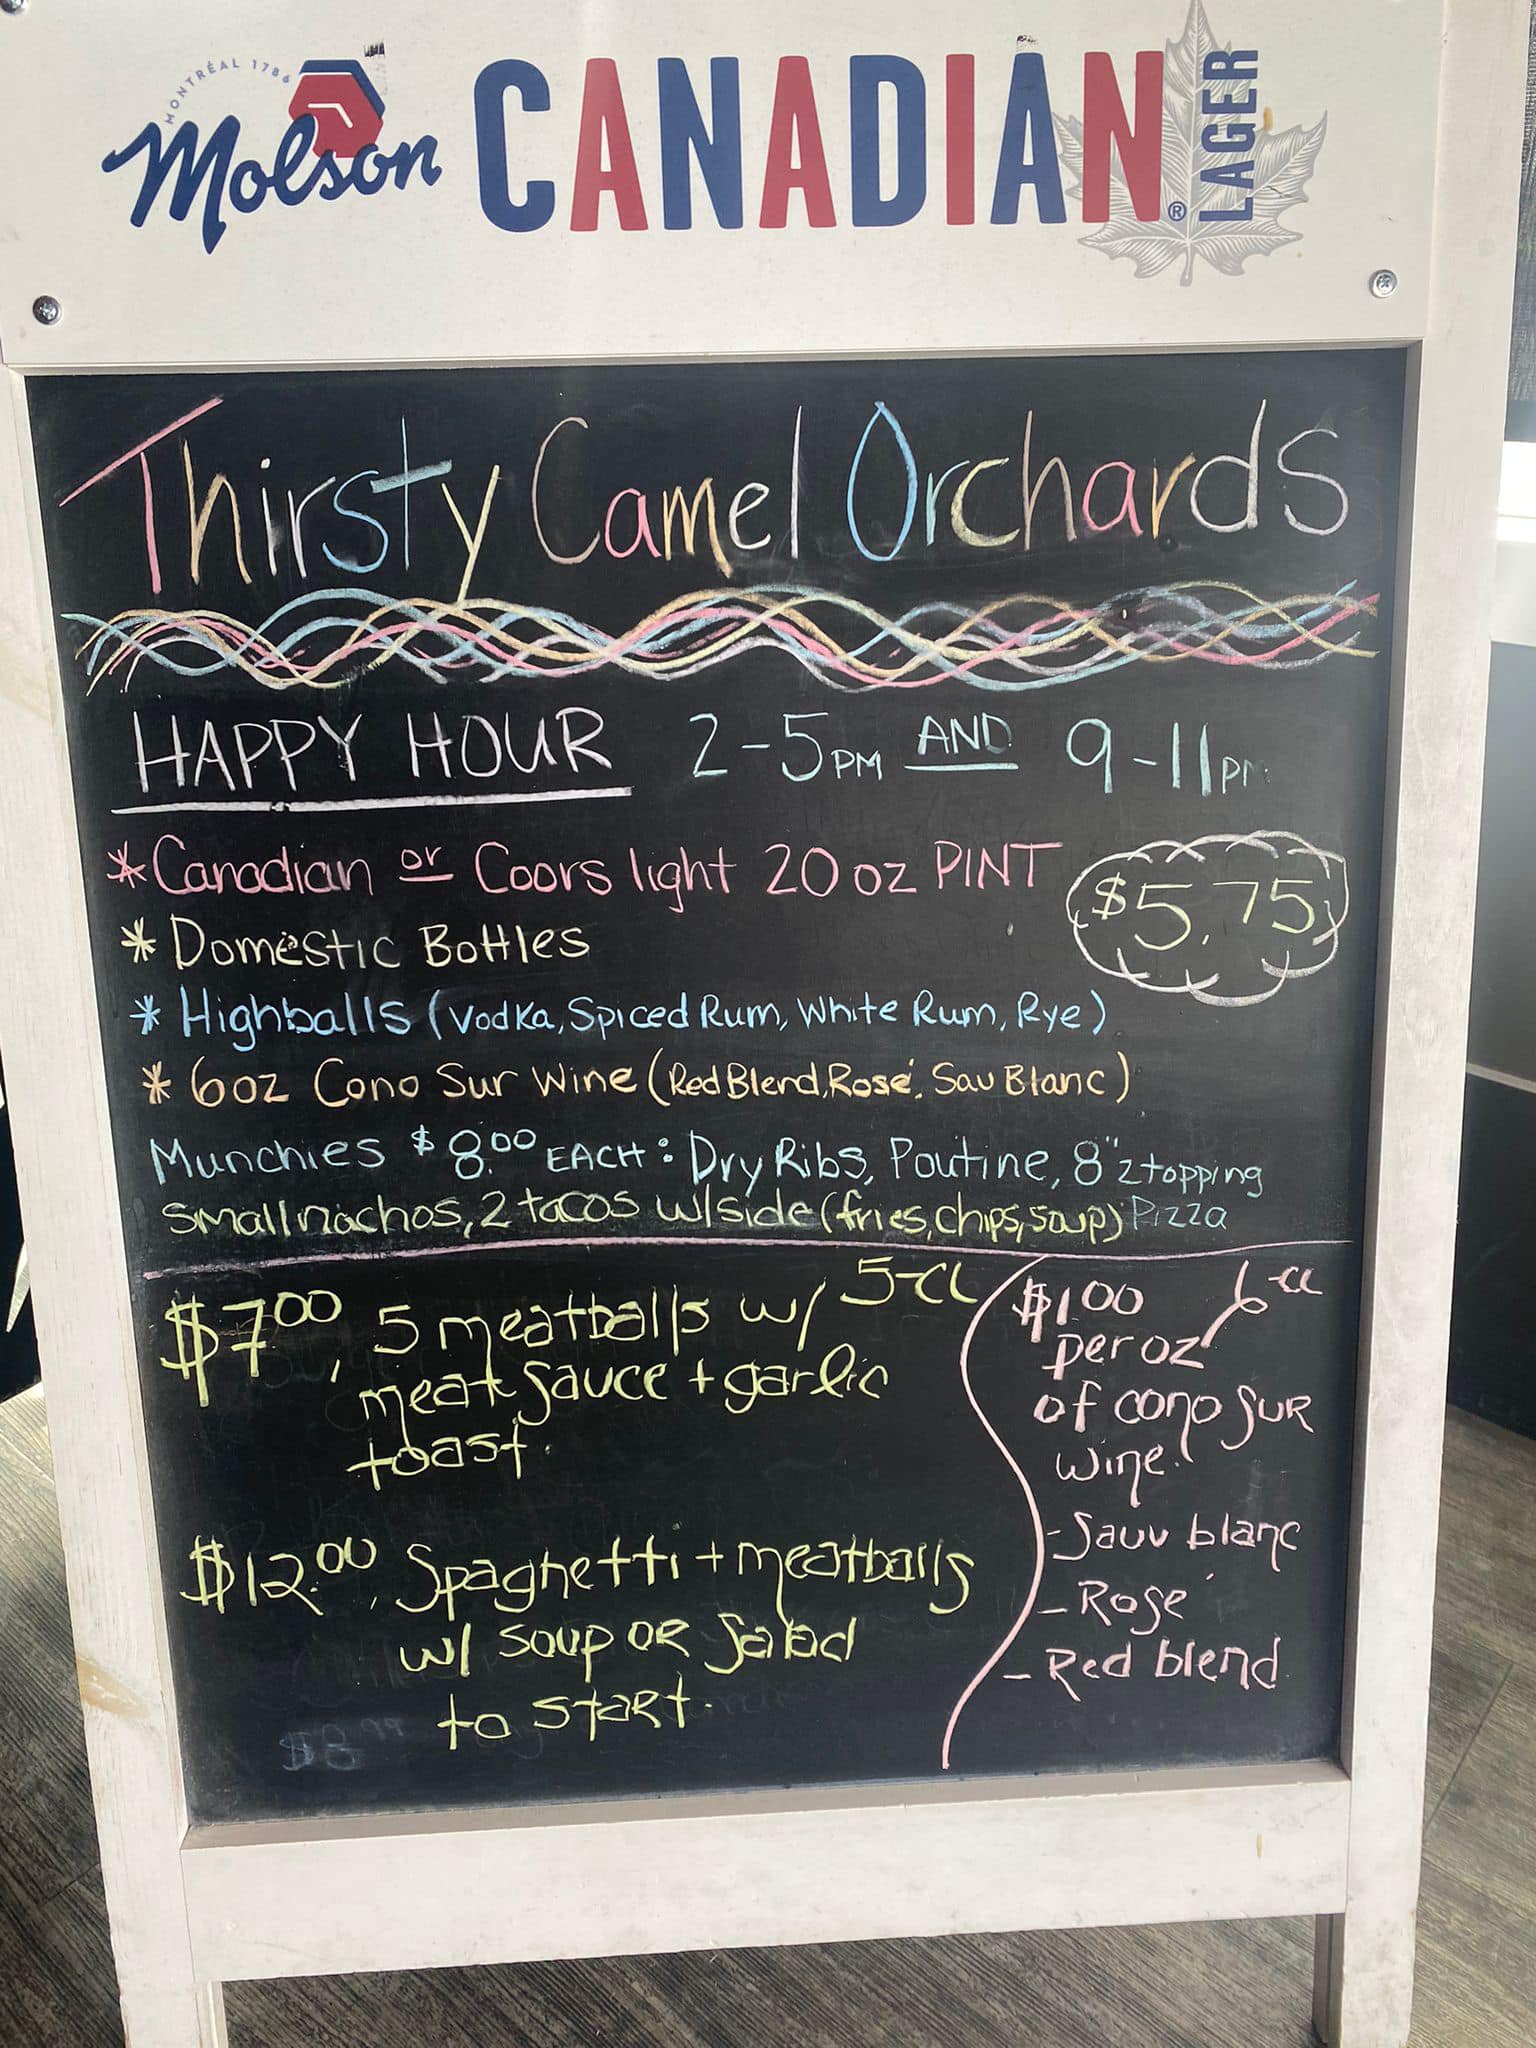 MONTRÉAL 1786
Molson CANADIAN® LAGER
Thirsty Camel Orchards
HAPPY HOUR 2-5PM AND 9-11PM
*Canadian or Coors light 20 oz PINT
$5.75
* Domestic Bottles
* Highballs (Vodka, Spiced Rum, White Rum, Rye)
* 6oz Cono Sur Wine (Red Blend, Rosé, Sav Blanc)
Munchies $8.00 EACH: Dry Ribs, Poutine, 8" 2topping
small nachos, 2 tacos w/side (fries, chips, soup) Pizza
$7.00, 5 meatballs w/ 5-CL
meat sauce + garlic
toast.
$12.00, Spaghetti + meatballs
w/ soup or salad
to start.
$8.99
$1.00 6-CL
per oz
of cono sur
wine.
- Sauv blanc
- Rosé
- Red blend.